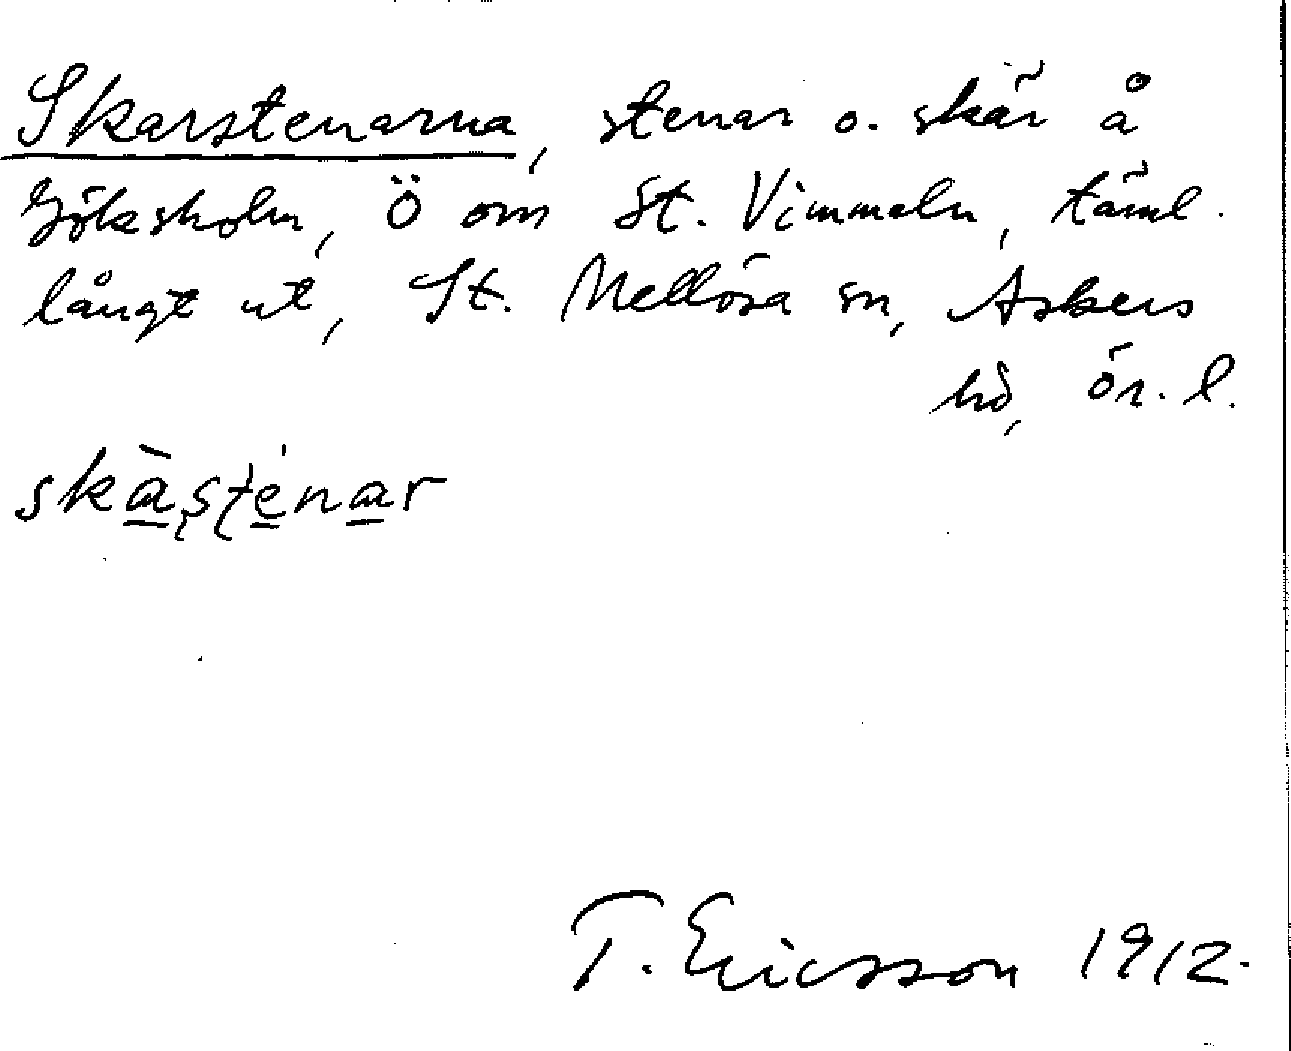 Skarstenarna, stenar o. skär å
Göksholm, Ö om St. Vimmeln, täml.
långt ut, St. Mellösa sn, Askers
hd, Ör. l.
skàsténar
T. Ericsson 1912.